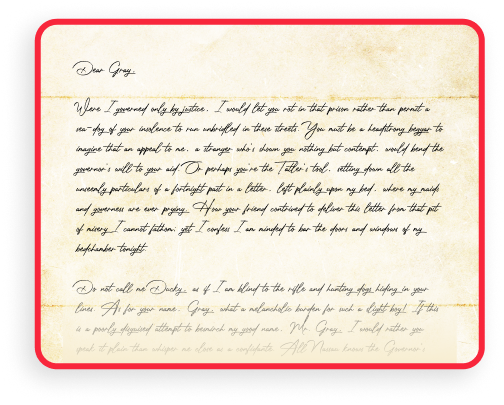 Dear Gray,
Were I governed only by justice, I would let you rot in that prison rather than permit a
sea-dog of your insolence to run unbridled in these streets. You must be a headstrong beggar to
imagine that an appeal to me, a stranger who's shown you nothing but contempt, would bend the
governor's will to your aid. Or perhaps you're the Tatler's tool, setting down all the
unseemly particulars of a fortnight past in a letter, left plainly upon my bed, where my maids
and governess are ever prying. How your friend contrived to deliver this letter from that pit
of misery I cannot fathom; yet I confess I am minded to bar the doors and windows of my
bedchamber tonight.
Do not call me Ducky, as if I am blind to the rifle and hunting dogs hiding in your
lines. As for your name, Gray, what a melancholic burden for such a slight boy! If this
is a poorly disguised attempt to besmirch my good name, Mr. Gray, I would rather you
speak it plain than whisper me close as a confidante. All Nassau knows the Governor's